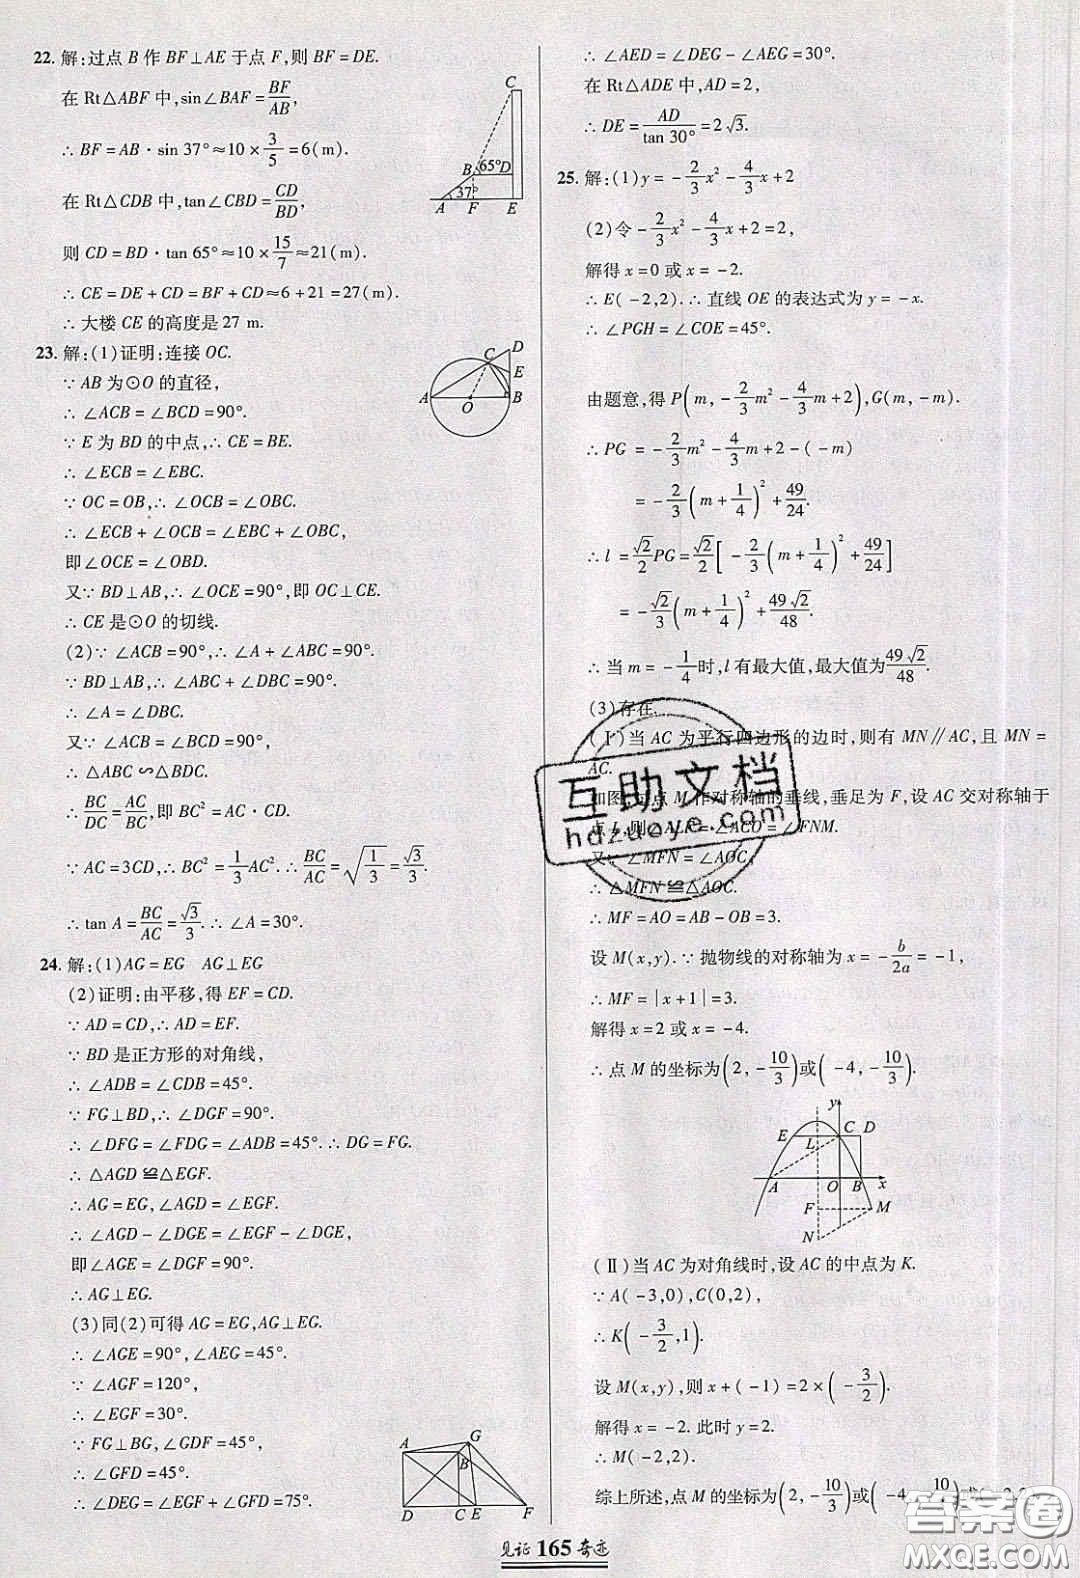 22. 解:过点 B 作 BF⊥AE 于点 F,则 BF=DE.
在 Rt△ABF 中,sin∠BAF=BF/AB,
∴ BF=AB·sin 37°≈10×3/5=6(m).
在 Rt△CDB 中,tan∠CBD=CD/BD,
则 CD=BD·tan 65°≈10×15/7≈21(m).
∴ CE=DE+CD=BF+CD≈6+21=27(m).
∴ 大楼 CE 的高度是 27 m.
C
B 65° D
37°
A F E
23. 解:(1)证明:连接 OC.
∵ AB 为⊙O 的直径,
∴ ∠ACB=∠BCD=90°.
∵ E 为 BD 的中点,∴ CE=BE.
∴ ∠ECB=∠EBC.
∵ OC=OB,∴ ∠OCB=∠OBC.
∴ ∠ECB+∠OCB=∠EBC+∠OBC,
即∠OCE=∠OBD.
又∵ BD⊥AB,∴ ∠OCE=90°,即 OC⊥CE.
∴ CE 是⊙O 的切线.
(2)∵ ∠ACB=90°,∴ ∠A+∠ABC=90°.
∵ BD⊥AB,∴ ∠ABC+∠DBC=90°.
∴ ∠A=∠DBC.
又∵ ∠ACB=∠BCD=90°,
∴ △ABC∽△BDC.
∴ BC/DC=AC/BC,即 BC²=AC·CD.
∵ AC=3CD,∴ BC²=1/3AC².∴ BC/AC=√(1/3)=√3/3.
∴ tan A=BC/AC=√3/3.∴ ∠A=30°.
D
C
E
A O B
24. 解:(1)AG=EG AG⊥EG
(2)证明:由平移,得 EF=CD.
∵ AD=CD,∴ AD=EF.
∵ BD 是正方形的对角线,
∴ ∠ADB=∠CDB=45°.
∵ FG⊥BD,∴ ∠DGF=90°.
∴ ∠DFG=∠FDG=∠ADB=45°.∴ DG=FG.
∴ △AGD≌△EGF.
∴ AG=EG,∠AGD=∠EGF.
∴ ∠AGD-∠DGE=∠EGF-∠DGE,
即∠AGE=∠DGF=90°.
∴ AG⊥EG.
(3)同(2)可得 AG=EG,AG⊥EG.
∴ ∠AGE=90°,∠AEG=45°.
∵ ∠AGF=120°,
∴ ∠EGF=30°.
∵ FG⊥BG,∠GDF=45°,
∴ ∠GFD=45°.
∴ ∠DEG=∠EGF+∠GFD=75°.
A G
B
D C E F
∴ ∠AED=∠DEG-∠AEG=30°.
在 Rt△ADE 中,AD=2,
∴ DE=AD/tan 30°=2√3.
25. 解:(1)y=-2/3x²-4/3x+2
(2)令-2/3x²-4/3x+2=2,
解得 x=0 或 x=-2.
∴ E(-2,2).∴ 直线 OE 的表达式为 y=-x.
∴ ∠PGH=∠COE=45°.
由题意,得 P(m,-2/3m²-4/3m+2),G(m,-m).
∴ PG=-2/3m²-4/3m+2-(-m)
=-2/3(m+1/4)²+49/24.
∴ l=√2/2PG=√2/2[-2/3(m+1/4)²+49/24]
=-√2/3(m+1/4)²+49√2/48.
∴ 当 m=-1/4时,l 有最大值,最大值为49√2/48.
(3)存在.
(Ⅰ)当 AC 为平行四边形的边时,则有 MN∥AC,且 MN=
AC.
如图,过点 M 作对称轴的垂线,垂足为 F,设 AC 交对称轴于
点 L,则∠ALF=∠ACO=∠FNM.
又∵ ∠MFN=∠AOC,
∴ △MFN≌△AOC.
∴ MF=AO=AB-OB=3.
设 M(x,y).∵ 抛物线的对称轴为 x=-b/2a=-1,
∴ MF=|x+1|=3.
解得 x=2 或 x=-4.
∴ 点 M 的坐标为(2,-10/3)或(-4,-10/3).
y
E L C D
A O B x
F M
N
(Ⅱ)当 AC 为对角线时,设 AC 的中点为 K.
∵ A(-3,0),C(0,2),
∴ K(-3/2,1).
设 M(x,y),则 x+(-1)=2×(-3/2).
解得 x=-2. 此时 y=2.
∴ M(-2,2).
综上所述,点 M 的坐标为(2,-10/3)或(-4,-10/3)或(-2,2).
见证 165 奇迹
互助文档
hdzuoye.com
答案圈
MXQE.COM